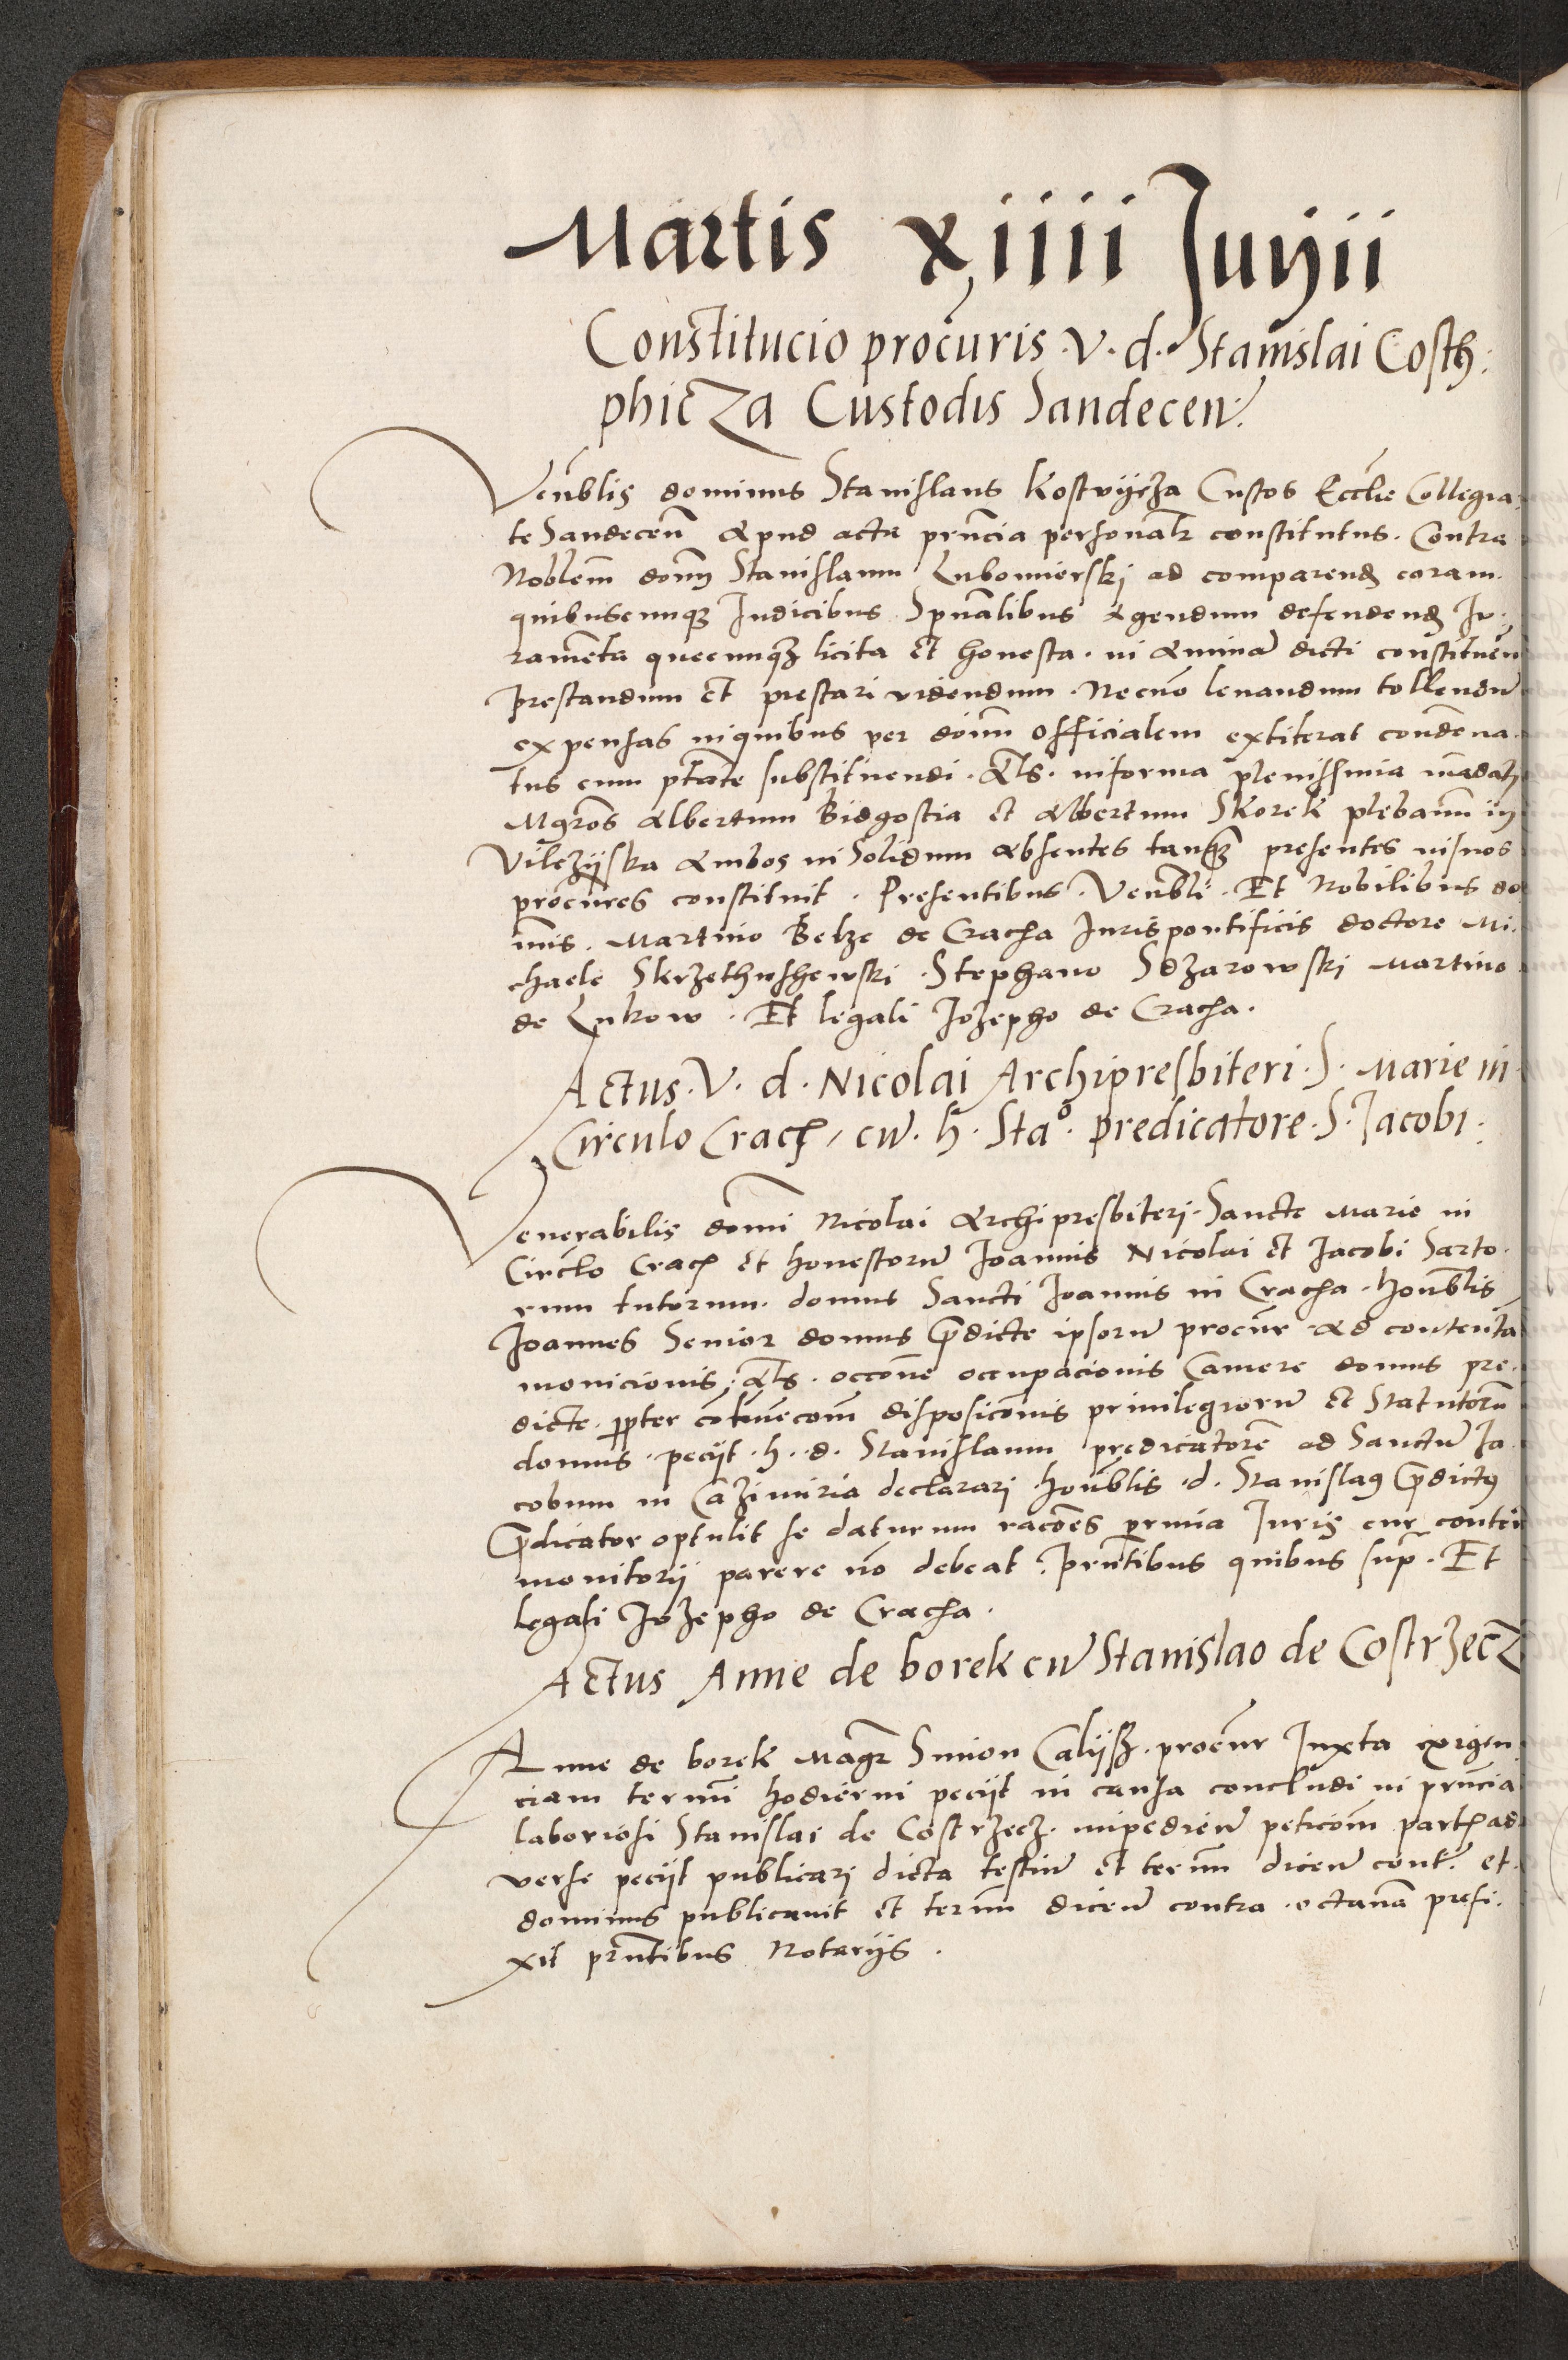 Martis xiiii Junii
Constitucio procuris · v · d · Stanislai Costh:
phicza Custodis Sandecen̄
Venͤblis dominus Stanislaus Kostvijcza Custos Eccl̄ie Collegia
te Sandecen̄ apud acta prn̄cia personalr̄ constitutus · Contra
Nobilem̄ dom̄ Stanislaum Lubomierski ad comparend coram
quibuscumqz Judicibus Spūalibus agendum defendend Ju
ramēta quecunqz licita et honesta · in animā dicti constituen̄
prestandum et prestari videndum · Necnō levandum tollendū
expensas in quibus per dōnū officialem extiterat condēna
tus cum ptāte substituendi · als̄ · in forma plenissima mādati
Mgr̄os Albertum Bidgostia et Albertum Skorek plebanū in
Vilczijska Ambos in Solidum absentes tanqz presentes in suos
procūres constituit · Presentibus · Venbli · Et Nobilibus do
mīs · Martino Belze de Cracħa Juris pontificis doctore Mi
chaele Skrzethushewski · Stephano Sdzarowski Martino
de Lukow · Et legali Jozepho de Cracħa ·
Actus · V · d · Nicolai Archipresbiteri · S · Marie in
Circulo Cracħ, cū · h · Sta° · predicatore · S · Jacobi ·
Venerabilis dōmi Nicolai Archipresbiteri · Sancte Marie in
Circlo Cracħ et honestorū Joannis Nicolai et Jacobi Sarto
rum tutorum · domus Sancti Joannis in Cracħa · honͤblis
Joannes Senior domus p̄dicte ipsorū procūr · ad contenta
monicionis · als̄ · occōne occupacionis Camere domus pre
dicte · ppter disposicōnis privilegiorū et Statutorū
domus · pecijt · h · d · Stanislaum predicatorē ad Sanctū Ja
cobum in Cazimiria declarari · honͤblis · d · Stanislaꝰ p̄dictꝰ
p̄dicator optulit se daturum racōes Juris cur conten
monitorij parere nō debeat · prn̄tibus quibus sup̄ · Et
legali Jozepho de Cracħa ·
Actus Anne de borek cū Stanislao de Costrzecz
Anne de borek Magr̄ Simon Calijsz · procūr Juxta exigen
ciam termī hodierni pecijt in causa concludi in prn̄cia
laboriosi Stanislai de Costrzecz · impedien̄ peticōm partis ad
verse pecijt publicari dicta testiū et termū dicen̄ cont̄ · et
dominus publicavit et termū dicen̄ contra · octavā prefi
xit prn̄tibus Notarijs ·